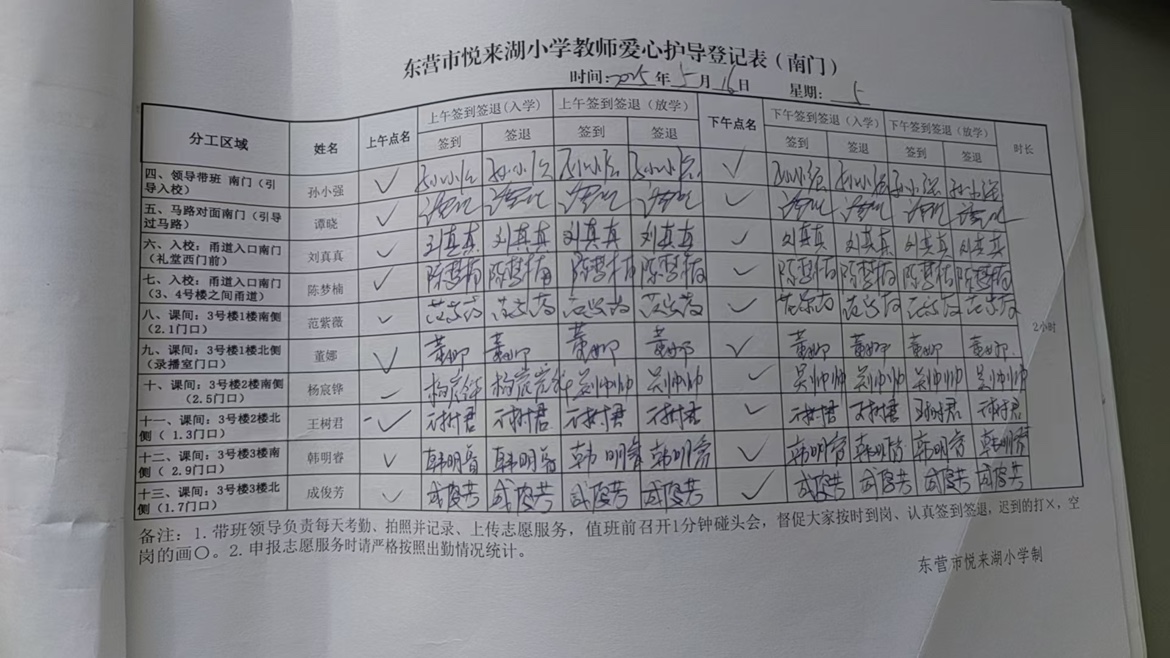 东营市悦来湖小学教师爱心护导登记表（南门）
时间:2025年5月16日 星期: 5
分工区域 姓名 上午点名 上午签到签退(入学) 上午签到签退（放学） 下午点名 下午签到签退（入学） 下午签到签退（放学） 时长
签到 签退 签到 签退 签到 签退 签到 签退
四、领导带班 南门（引导入校） 孙小强 ✓ 孙小强 孙小强 孙小强 孙小强 ✓ 孙小强 孙小强 孙小强 孙小强
五、马路对面南门（引导过马路） 谭晓 ✓ 谭晓 谭晓 谭晓 谭晓 ✓ 谭晓 谭晓 谭晓 谭晓
六、入校：甬道入口南门（礼堂西门前） 刘真真 ✓ 刘真真 刘真真 刘真真 刘真真 ✓ 刘真真 刘真真 刘真真 刘真真
七、入校：甬道入口南门（3、4号楼之间甬道） 陈梦楠 ✓ 陈梦楠 陈梦楠 陈梦楠 陈梦楠 ✓ 陈梦楠 陈梦楠 陈梦楠 陈梦楠
八、课间：3号楼1楼南侧（2.1门口） 范紫薇 ✓ 范紫薇 范紫薇 范紫薇 范紫薇 ✓ 范紫薇 范紫薇 范紫薇 范紫薇 2小时
九、课间：3号楼1楼北侧（录播室门口） 董娜 ✓ 董娜 董娜 董娜 董娜 ✓ 董娜 董娜 董娜 董娜
十、课间：3号楼2楼南侧（2.5门口） 杨宸铧 ✓ 杨宸铧 杨宸铧 吴帅帅 吴帅帅 ✓ 吴帅帅 吴帅帅 吴帅帅 吴帅帅
十一、课间：3号楼2楼北侧（ 1.3门口） 王树君 ✓ 王树君 王树君 王树君 王树君 ✓ 王树君 王树君 王树君 王树君
十二、课间：3号楼3楼南侧（ 2.9门口） 韩明睿 ✓ 韩明睿 韩明睿 韩明睿 韩明睿 ✓ 韩明睿 韩明睿 韩明睿 韩明睿
十三、课间：3号楼3楼北侧（1.7门口） 成俊芳 ✓ 成俊芳 成俊芳 成俊芳 成俊芳 ✓ 成俊芳 成俊芳 成俊芳 成俊芳
备注：1.带班领导负责每天考勤、拍照并记录、上传志愿服务，值班前召开1分钟碰头会，督促大家按时到岗、认真签到签退，迟到的打×，空
岗的画〇。2.申报志愿服务时请严格按照出勤情况统计。
东营市悦来湖小学制